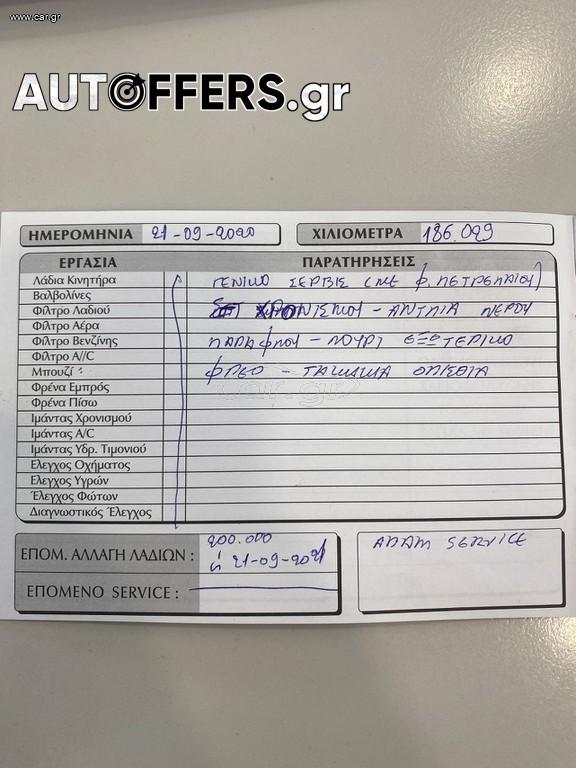 www.car.gr
AUTOFFERS.gr
ΗΜΕΡΟΜΗΝΙΑ 21-09-2020 ΧΙΛΙΟΜΕΤΡΑ 186.029
ΕΡΓΑΣΙΑ ΠΑΡΑΤΗΡΗΣΕΙΣ
Λάδια Κινητήρα ΓΕΝΙΚΟ ΣΕΡΒΙΣ (ΜΕ Φ. ΠΕΤΡΕΛΑΙΟΥ)
Βαλβολίνες
Φίλτρο Λαδιού ΣΕΤ ΧΡΟΝΙΣΜΟΥ - ΑΝΤΛΙΑ ΝΕΡΟΥ
Φίλτρο Αέρα
Φίλτρο Βενζίνης ΠΑΡΑΦΛΟΥ - ΛΟΥΡΙ ΕΞΩΤΕΡΙΚΟ
Φίλτρο A//C
Μπουζί ΦΡΕΟ - ΤΑΚΑΚΙΑ ΟΠΙΣΘΙΑ
Φρένα Εμπρός
car.gr
Φρένα Πίσω
Ιμάντας Χρονισμού
Ιμάντας A/C
Ιμάντας Υδρ. Τιμονιού
Ελεγχος Οχήματος
Ελεγχος Υγρών
Έλεγχος Φώτων
Διαγνωστικός Έλεγχος
200.000
ΕΠΟΜ. ΑΛΛΑΓΗ ΛΑΔΙΩΝ : ή 21-09-2021
ΕΠΟΜΕΝΟ SERVICE :
ADAM SERVICE